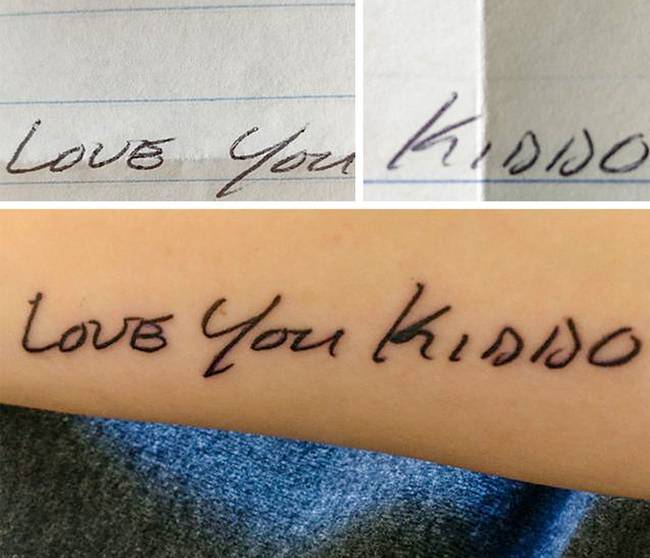 LOVE You
KIDDO
LOVE You KIDDO